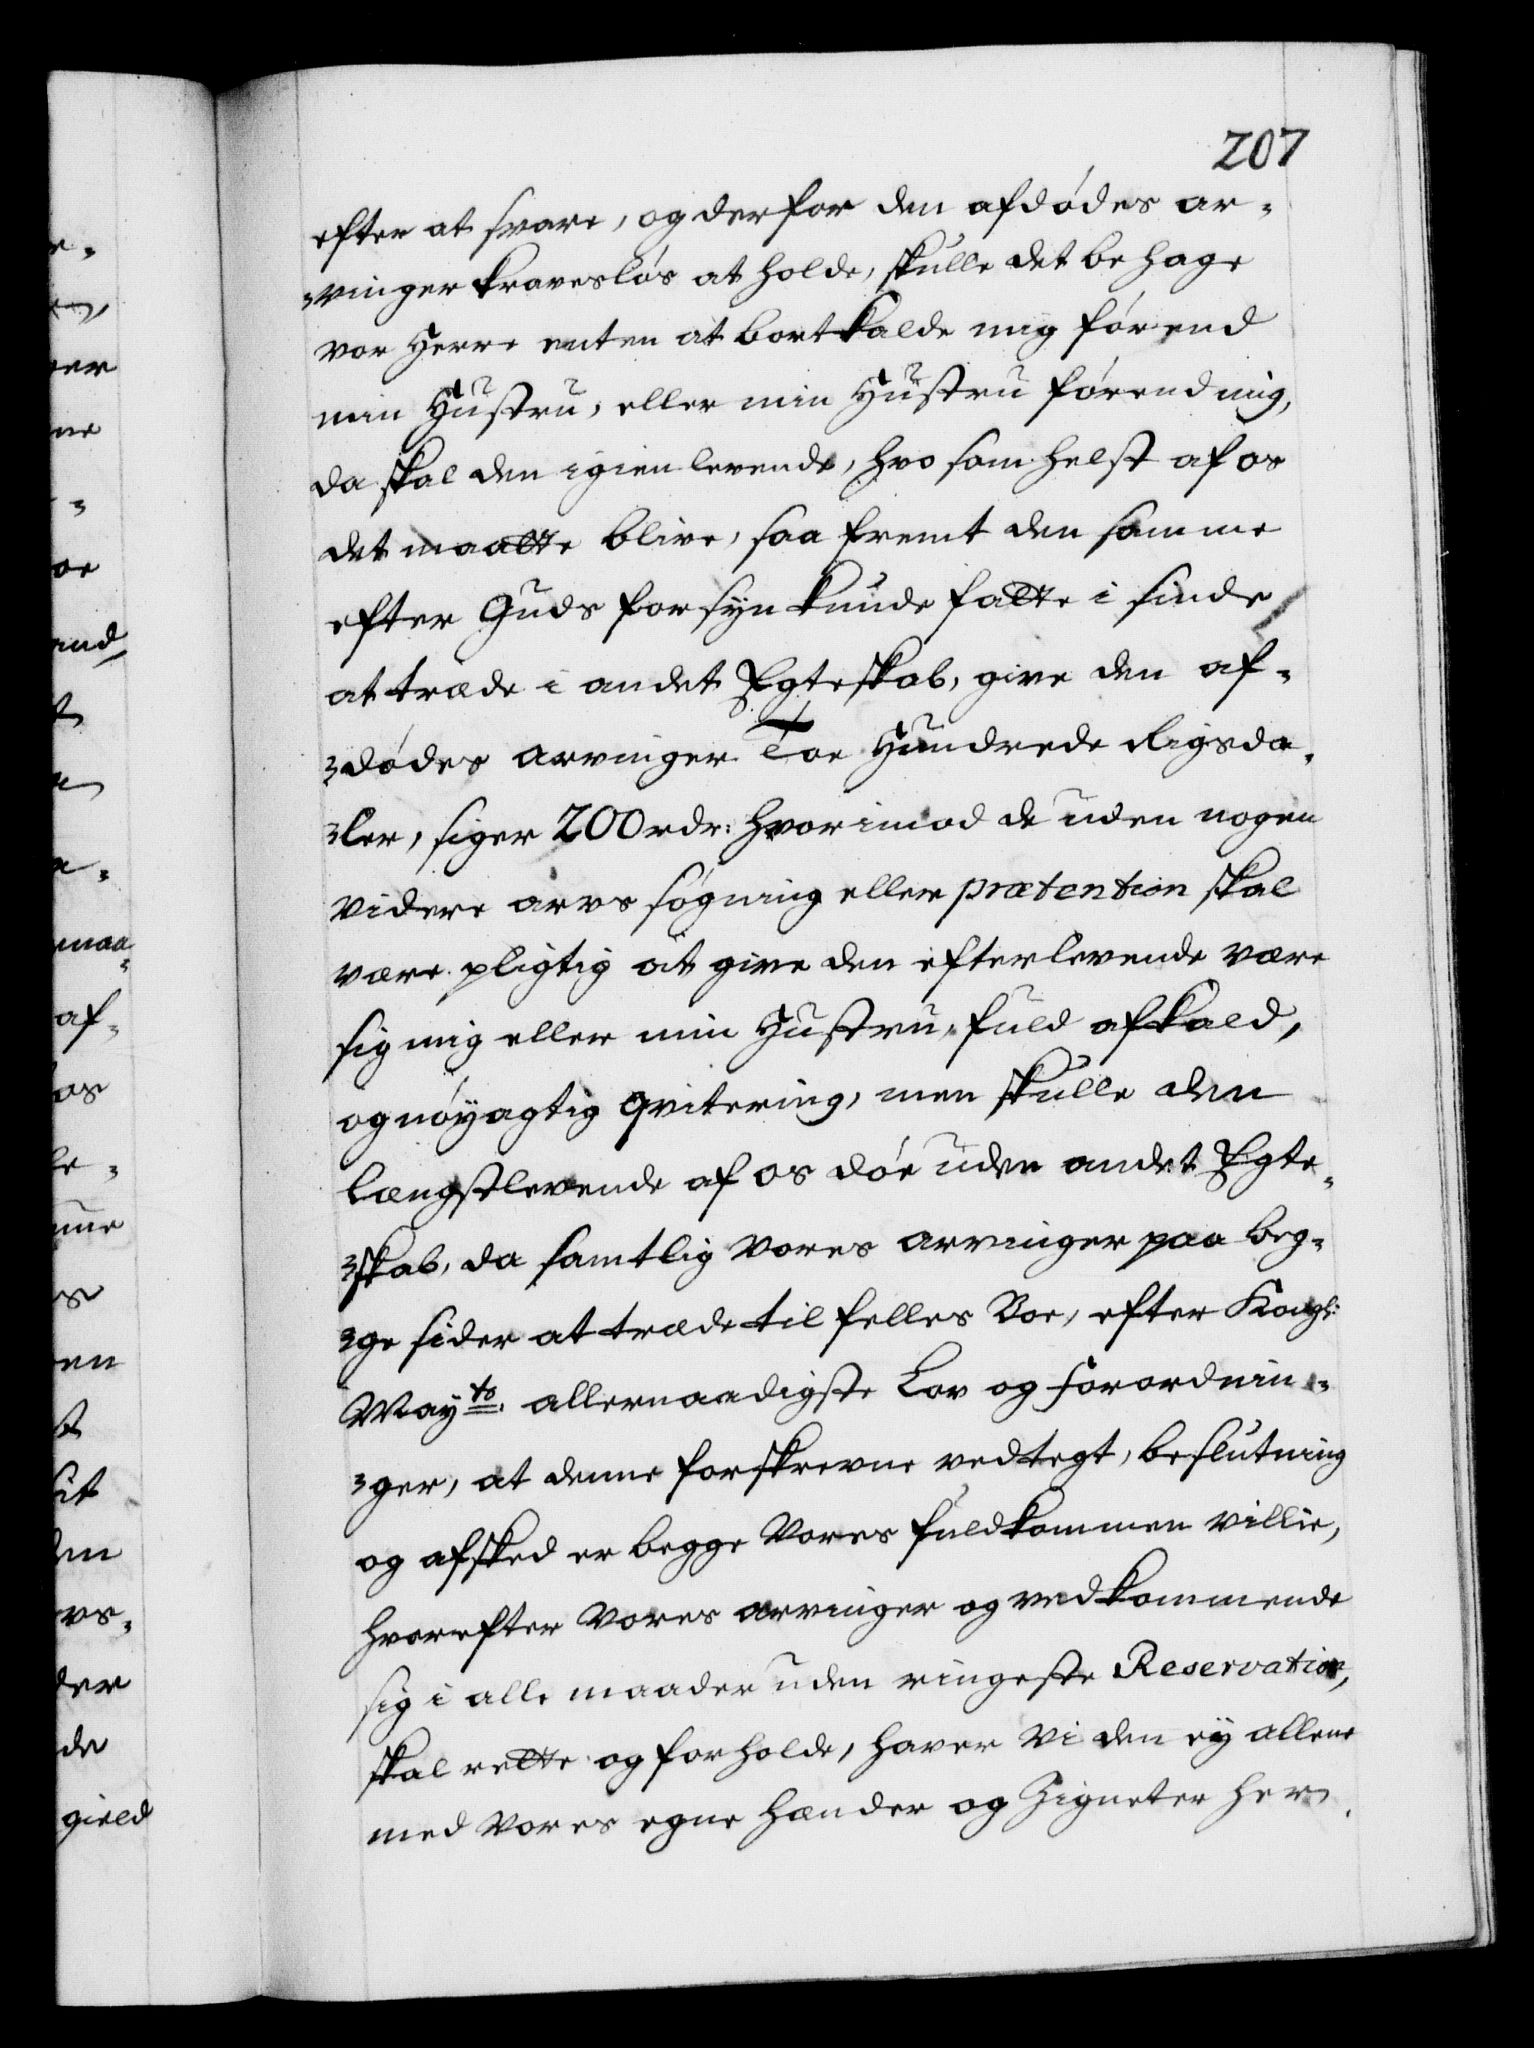 207
efter at svare, og derfor den afdødes ar-
-vinger kravesløs at holde, skulle det behage
vor Herre enten at bortkalde mig förend
min Hustru, eller min Hustru förend mig,
da skal den igienlevende, hvo som helst af os
det maatte blive, saa fremt den samme
efter Guds forsyn kunde fatte i sinde
at træde i andet Egteskab, give den af-
-dødes arvinger Toe Hundrede Rigsda-
-ler, siger 200 rdr: hvorimod de uden nogen
videre arvs søgning eller prætention skal
være pligtig at give den efterlevende være
sig mig eller min Hustru, fuld afkald,
og nøyagtig qvitering, men skulle den
længstlevende af os døe uden andet Egte-
-skab, da samtlig Vores arvinger paa beg-
-ge sider at træde til felles Boe, efter Kongl:
Mayts. allernaadigste Lov og forordnin-
-ger, at denne forskrevne vedtegt, beslutning
og afsked er begge Vores fuldkommen villie,
hvorefter Vores arvinger og vedkommende
sig i alle maader uden ringeste Reservation,
skal rette og forholde, haver Vi den ey allene
med Vores egne Hænder og Zigneter her
r-
er
ne
-
oe
and
t
n
maa-
af-
os
le-
nne
en
st
sit
den
vs-
der
de
gield